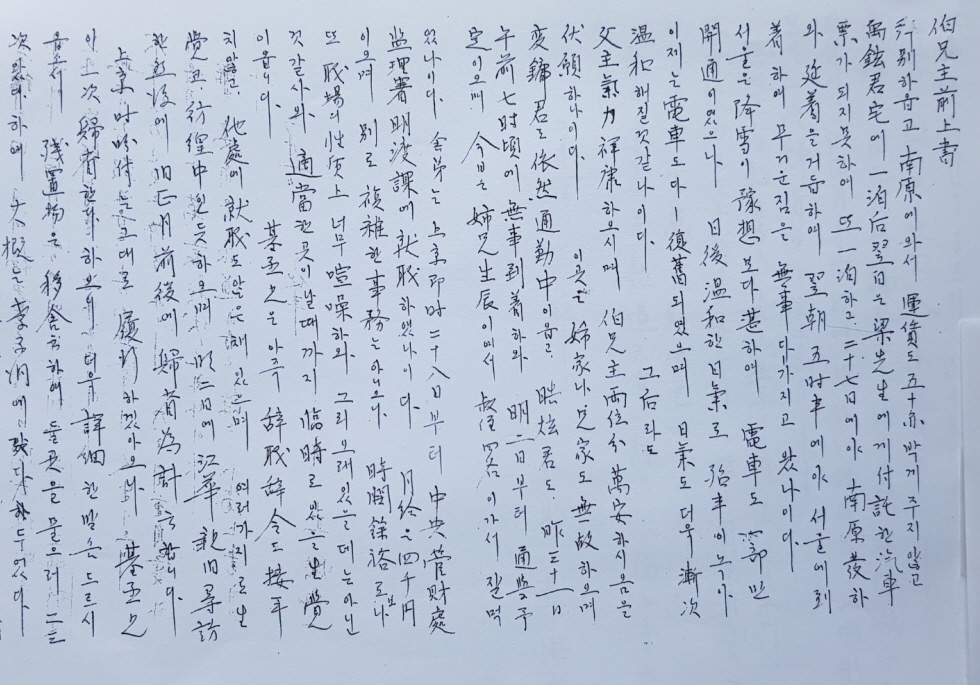 伯兄主前上書
拜別하옵고 南原에와서 運賃도五十원박게주지않고
禹鉉君宅에 一泊后翌日은 梁先生에게付託한汽車
票가되지못하여 또一泊하고 二十七日에야 南原發하
와 延着을거듭하여 翌朝 五時半에야 서울에到
着하여 무거운짐을 無事다가지고 왔나이다.
서울은降雪이 豫想보다甚하여 電車도 一部만
開通이였으나 日後温和한日氣로 殆半이녹아
이제는電車도다 復舊되였으며 日氣도 더욱 漸次
温和해질것같나이다. 그后라도
父主氣力 祥康하오시며 伯兄主兩位分 萬安하시옴을
伏願하나이다. 이곳은 姉家나兄家도 無故하오며
變鏞君은依然通勤中이옵고 君도 昨三十一日
午前七時頃에 無事到着하와 明二日부터 通學予
定이오며 今日은 姉兄生辰이여서 叔侄 이가서 잘먹
었나이다. 舍弟는 上京即時二十八日부터 中央管財處
監理署明渡課에 就職하였나이다. 月給은四千円
이오며 別로 複雜한事務는아니오나 時間餘裕로나
또 職場의性质上 너무喧噪하와 그리오래있을데는아닌
것갈사와 適當한곳이날때까지 臨時로 있을生覺
이옵니다. 基孟兄은아주 辞職辞令도接手
치않고 他處에就職도않은채 있으며 여러가지로生
覺코 彷徨中인듯하오며 明二日에 江華 親旧尋訪
한然後에 旧正月前後에 歸省為計 합니다.
上京时 付 는그대로 履行하겠아오며 基孟兄
이上次歸省한 하오니 더욱 詳細한 말슴드르시
옵소서 残置物은 移舍하여 둘곳을 물으러 二三
次왔다하여 大概는 李 에 두었다.